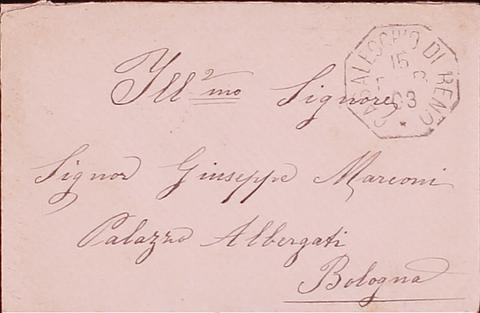 Ill.mo Signore
Signor Giuseppe Marconi
Palazzo Albergati
Bologna
CASALECCHIO DI RENO
15
93